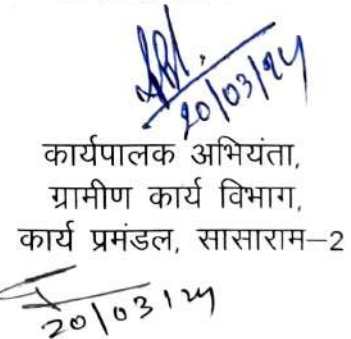 20/03/24
कार्यपालक अभियंता,
ग्रामीण कार्य विभाग,
कार्य प्रमंडल, सासाराम–2
20/03/24